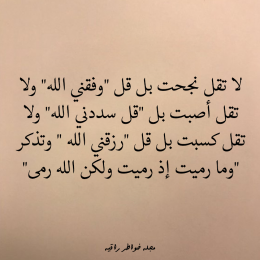 لا تقل نجحت بل قل "وفقني الله" ولا
تقل أصبت بل "قل سددني الله" ولا
تقل كسبت بل قل "رزقني الله " وتذكر
"وما رميت إذ رميت ولكن الله رمى"
مجلة خواطر راقية